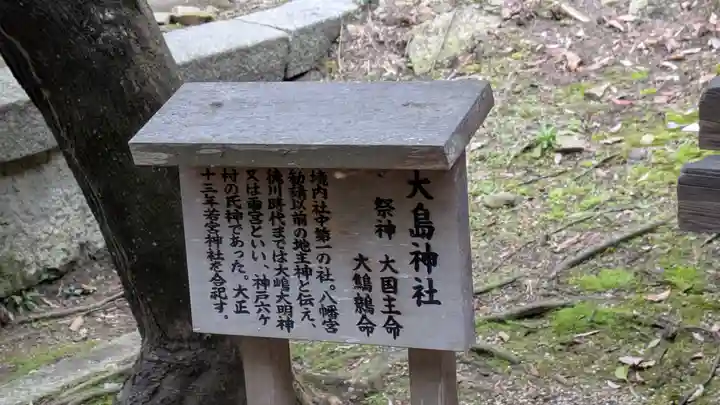 大島神社
祭神 大国主命
大鷦鷯命
境内社中第一の社。八幡宮
勧請以前の地主神と伝え、
徳川時代までは大嶋大明神
又は雷宮といい、神戸六ケ
村の氏神であった。大正
十三年若宮神社を合祀す。